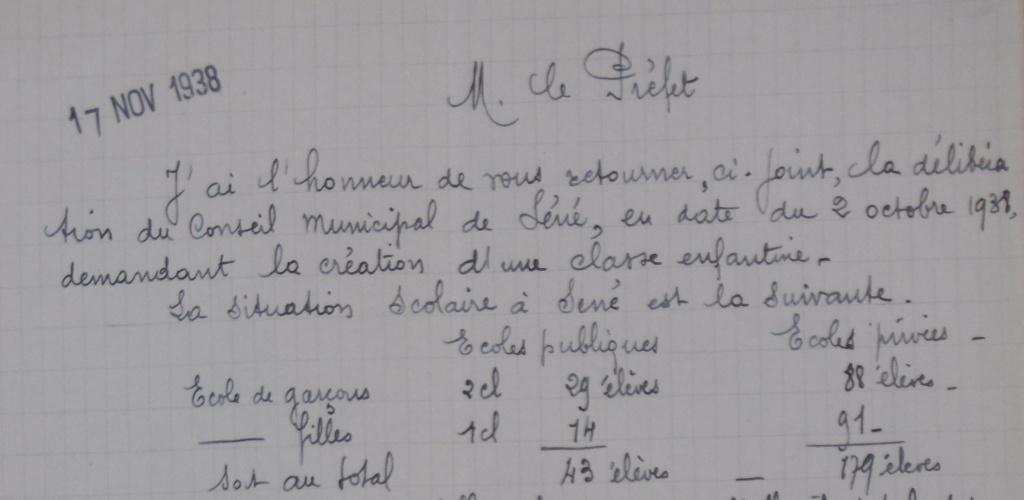 17 NOV 1938
M. le Préfet
J'ai l'honneur de vous retourner, ci-joint, la délibéra
tion du Conseil Municipal de Séné, en date du 2 octobre 1938,
demandant la création d'une classe enfantine.
La situation scolaire à Séné est la suivante.
Ecoles publiques Ecoles privées -
Ecole de garçons 2cl 29 élèves 88 élèves -
—— filles 1cl 14 91 -
Soit au total 43 élèves — 179 élèves